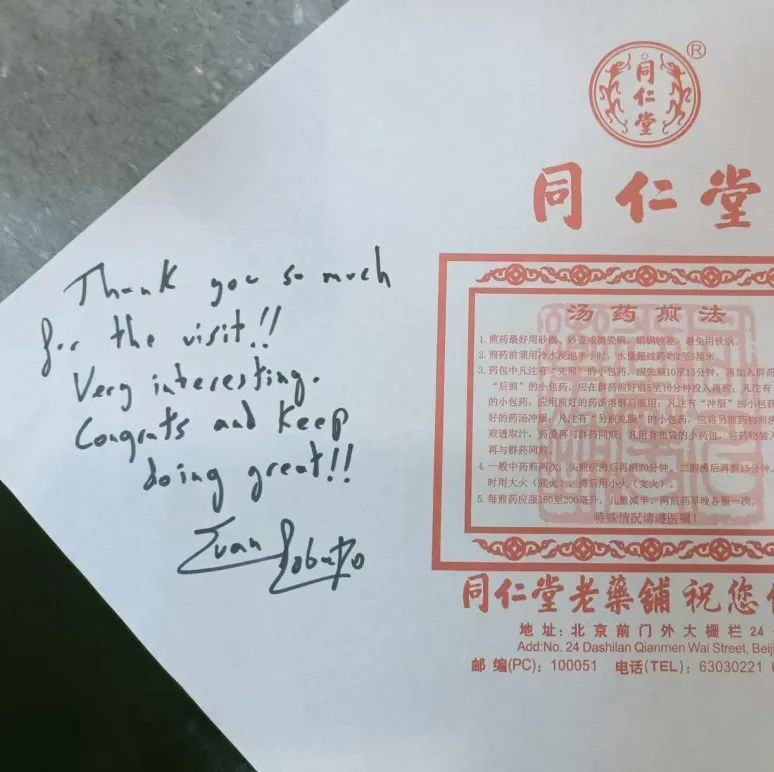 Thank you so much
for the visit!!
Very interesting.
Congrats and keep
doing great!!
®
同仁堂
同仁堂
汤药煎法
1.煎药最好用砂锅、砂壶或搪瓷锅,铝锅较差,避免用铁锅。
2.煎药前须用冷水浸泡半小时,水量超过药物2至5厘米。
3.药包中凡注有“先煎”的小包药,应先煎10至15分钟,再加入群药
“后煎”的小包药,应在群药煎好前5至10分钟投入再煎;凡注有
的小包药,应用煎好的药汤溶解后服用;凡注有“冲服”的小包药
好的药汤冲服;凡注有“另煎兑服”的小包药,应将另煎药物煎沸
煎透取汁,药渣再与群药同煎;凡附有布袋的小药包,将药物装入
再与群药同煎。
4.一般中药煎两次,头煎应沸后再煎20分钟,二煎沸后再煎15分钟。
时用大火(武火),沸后用小火(文火)。
5.每煎药应服150至200毫升,儿童减半,两煎药早晚各服一次。
特殊情况请遵医嘱!
同仁堂老藥鋪祝您
地址:北京前门外大栅栏24
Add:No. 24 Dashilan Qianmen Wai Street, Beij
邮编(PC):100051 电话(TEL):63030221